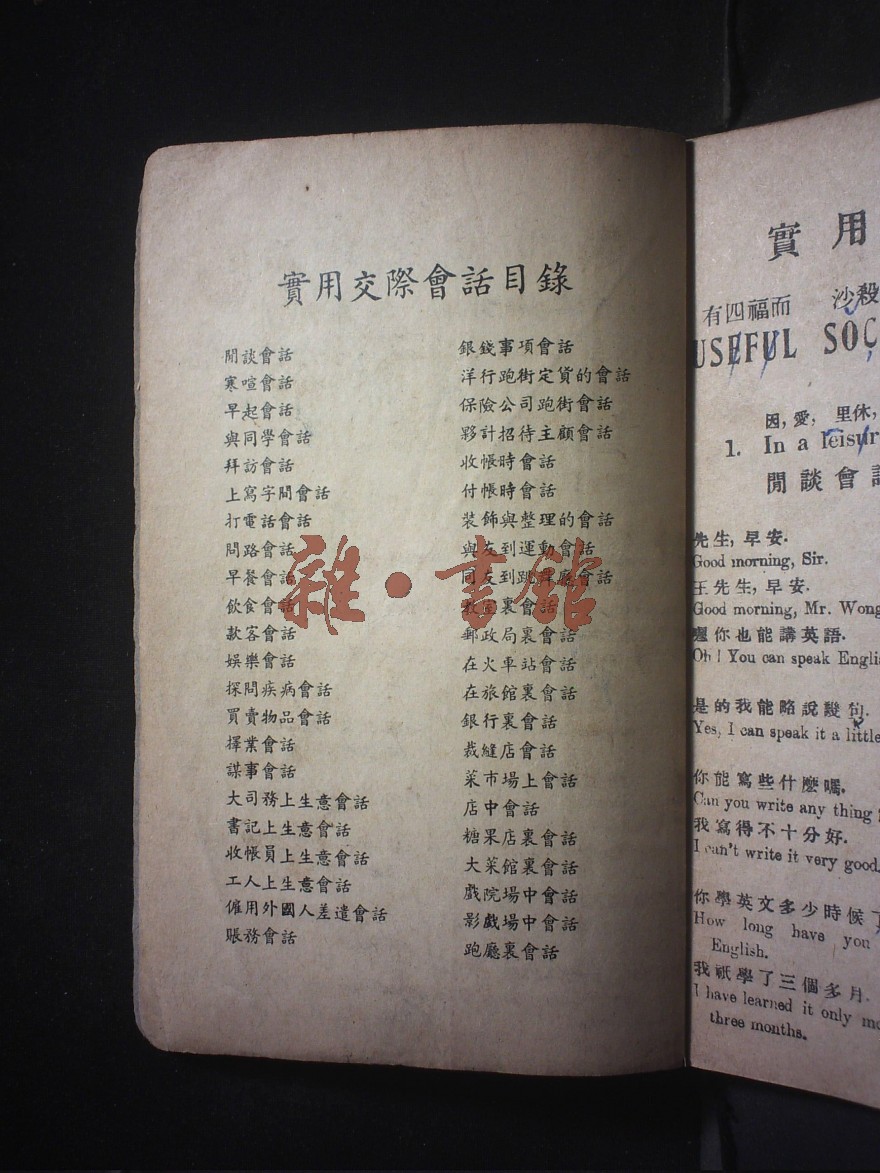 實用交際會話目錄
閒談會話
寒喧會話
早起會話
與同學會話
拜訪會話
上寫字間會話
打電話會話
問路會話
早餐會話
飲食會話
款客會話
娛樂會話
探問疾病會話
買賣物品會話
擇業會話
謀事會話
大司務上生意會話
書記上生意會話
收帳員上生意會話
工人上生意會話
僱用外國人差遣會話
賬務會話
銀錢事項會話
洋行跑街定貨的會話
保險公司跑街會話
夥計招待主顧會話
收帳時會話
付帳時會話
裝飾與整理的會話
與友到運動會話
同友到跳舞廳會話
裏會話
郵政局裏會話
在火車站會話
在旅館裏會話
銀行裏會話
裁縫店會話
菜市場上會話
店中會話
糖果店裏會話
大菜館裏會話
戲院場中會話
影戲場中會話
跑廳裏會話
雜·書館
實用
有四福而 沙殺
USEFUL SOC
因,愛, 里休,
1. In a leisur
閒談會話
先生,早安.
Good morning, Sir.
王先生,早安.
Good morning, Mr. Wong
你也能講英語.
Oh! You can speak Engli
是的我能略說幾句.
Yes, I can speak it a little
你能寫些什麼嗎.
Can you write any thing
我寫得不十分好.
I can't write it very good.
你學英文多少時候了
How long have you
English.
我祇學了三個多月.
I have learned it only mo
three months.